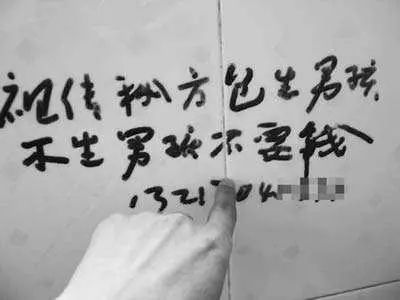 祖传秘方包生男孩
不生男孩不要钱